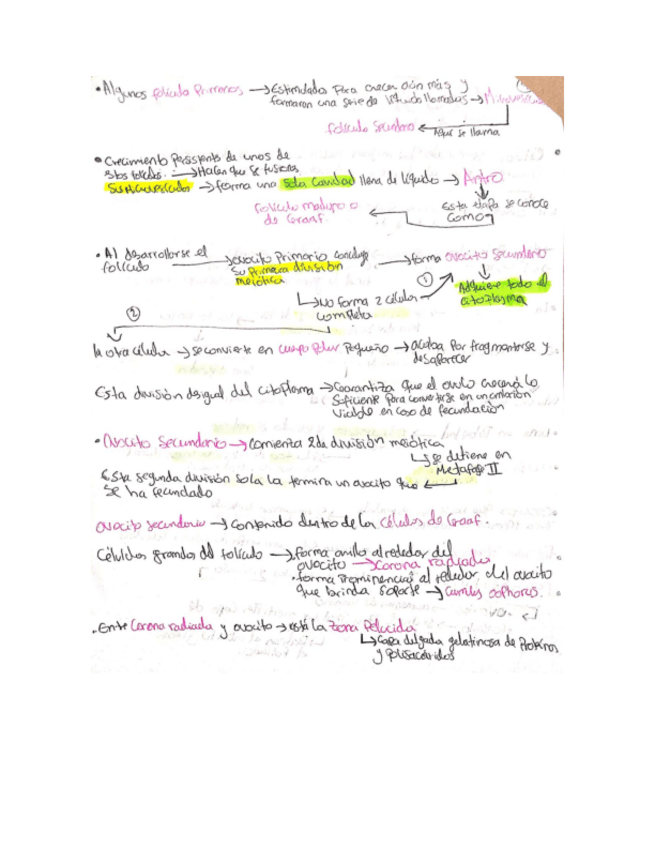 • Algunos folículo Primarios → Estimulados Para crecer aún más y
formaron una serie de líquido llamadas →
folículo Secundario ← Aquí se llama
• Crecimiento Persistente de unos de
estos folículos. → Hacen que se fusionen
sus → forma una sola cavidad llena de líquido → Antro
Esta etapa se conoce
como
folículo maduro o
de Graaf.
• Al desarrollarse el
folículo → ovocito Primario concluye
su Primera división
meiótica
→ forma ovocito Secundario
① Adquiere todo el
citoplasma
→ No forma 2 células
completa
②
la otra célula → se convierte en cuerpo Polar Pequeño → acaba Por fragmentarse y
desaparecer
Esta división desigual del citoplasma → Garantiza que el óvulo crecerá lo
suficiente Para convertirse en un embrión
viable en caso de fecundación
• Ovocito Secundario → comienza 2da división meiótica
→ se detiene en
Metafase II
Esta segunda división sola la termina un ovocito que
se ha fecundado
ovocito secundario → contenido dentro de los células de Graaf.
Células grandes del folículo → forma anillo alrededor del
ovocito → Corona radiada
• forma Prominencias al rededor del ovocito
que brinda soporte → Cumulus oophorus.
• Entre Corona radiada y ovocito → está la Zona Pelúcida
→ Capa delgada gelatinosa de Proteínas
y Polisacáridos